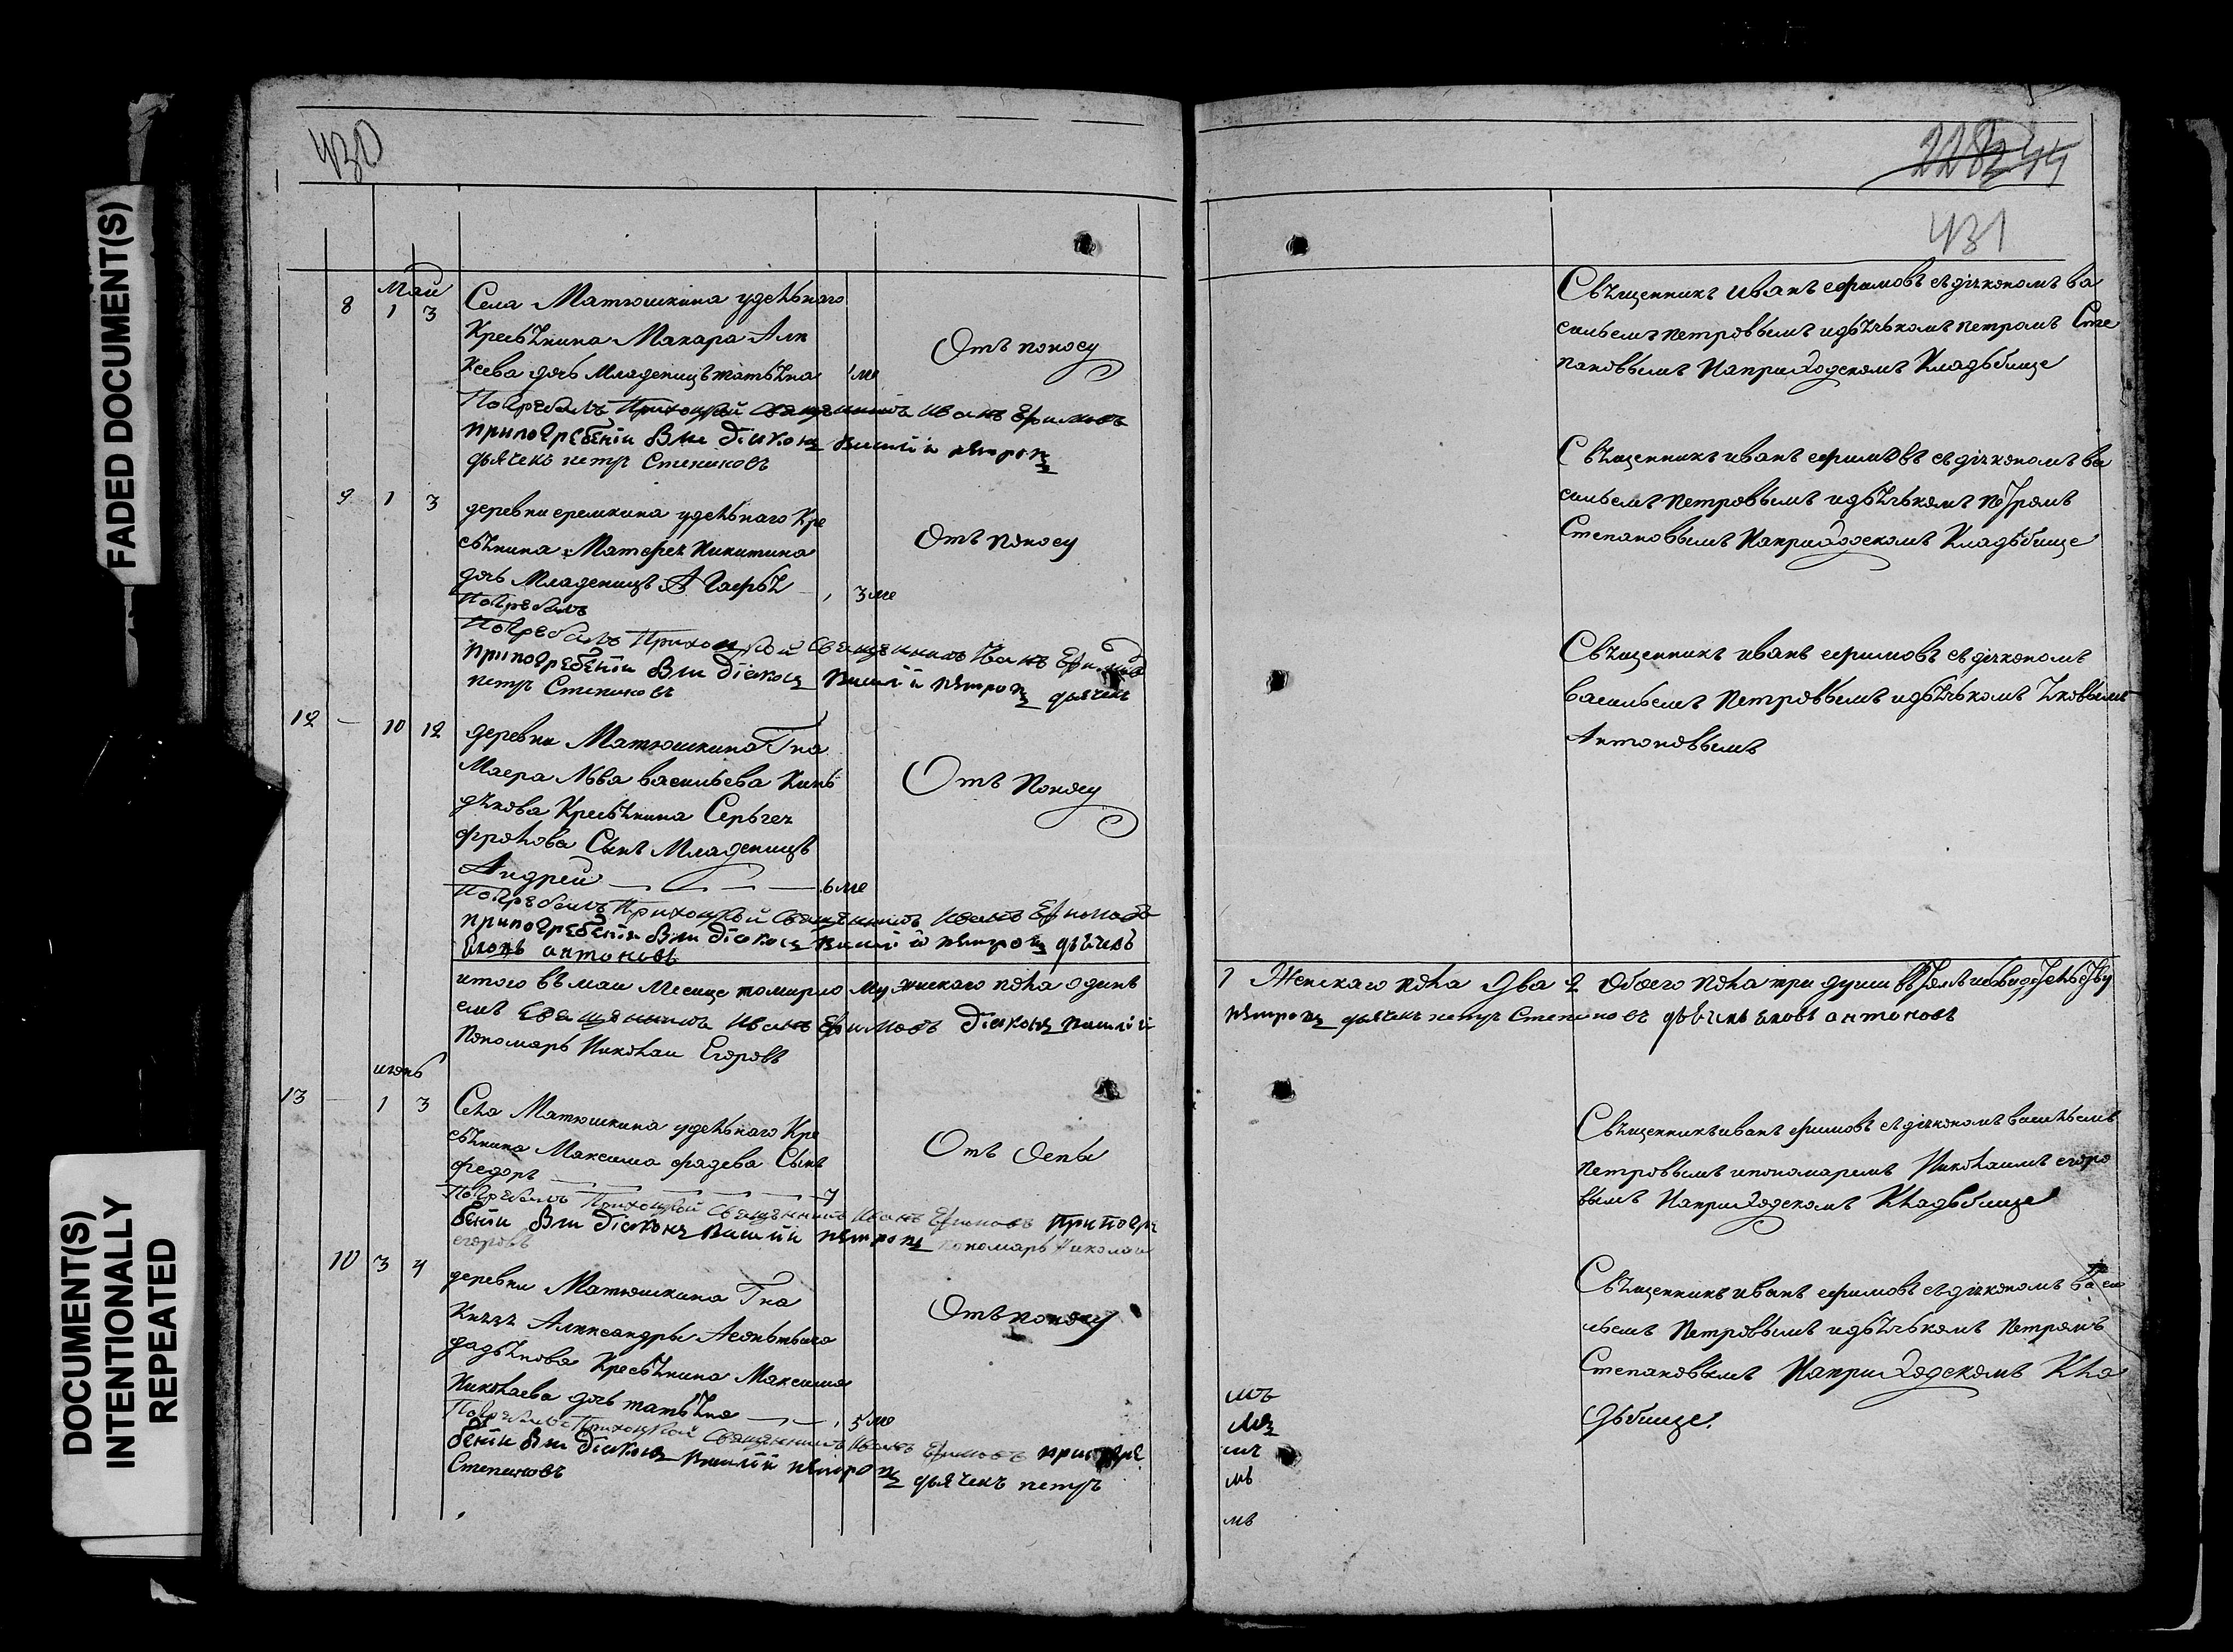 FADED DOCUMENT(S)
DOCUMENT(S)
INTENTIONALLY
REPEATED
430
Маи
8 1 3 Села Матюшкина удельнаго
Кресьянина Макара Але
Ксева дочь Младеницъ татьяна 1 ме
Отъ поносу
Погребалъ Приходской Священникъ Иванъ Ефимовъ
при погребении были Дiаконъ Василiй Петровъ
дьячекъ петръ Степановъ
9 1 3 деревни еремкина удельнаго Кре
сьянина Матефея Никитина
дочь Младеницъ Агафья 1 3 ме
Отъ поносу
Погребалъ
Погребалъ Приходской Священникъ Иванъ Ефимовъ
при погребении были Дiаконъ Василiй Петровъ дьячекъ
петръ Степановъ
12 — 10 12 деревни Матюшкина Гна
Маера Льва васильева Кинь
дякова Кресьянина Сергея
фролова Сынъ Младеницъ
Андреи 6 ме
Отъ поносу
Погребалъ Приходской Священникъ Иванъ Ефимовъ
при погребении были Дiаконъ Василiй Петровъ дьячекъ
Яковъ антоновъ
итого въ маи месице помирло мужискаго пола одинъ
емъ Священникъ Иванъ Ефимовъ Дiаконъ Василiй
Пономарь Николаи Егоровъ
июнь
13 — 1 3 Села Матюшкина удельнаго Кре
сьянина Максима фадева Сынъ
федоръ 7
Отъ Оспы
Погребалъ Приходской Священникъ Иванъ Ефимовъ при погре
бении были Дiаконъ Василiй Петровъ пономарь Николаи
егоровъ
10 3 4 деревни Матюшкина Гна
Князя Александры Леонтьича
Кресьянина Максима
Николаева дочь татьяна 5 ме
Отъ поносу
Погребалъ Приходской Священникъ Иванъ Ефимовъ при погре
бении были Дiаконъ Василiй Петровъ дьячекъ петръ
Степановъ
228 244
431
Свъященникъ иванъ ефимовъ съ дiякономъ ва
сильемъ петровымъ идьячькомъ петромъ Сте
пановымъ Наприходскомъ Кладьбище
Свъященникъ иванъ ефимовъ съ дiякономъ ва
сильемъ петровымъ идьячькомъ петромъ
Степановымъ Наприходскомъ Кладьбище
Свъященникъ иванъ ефимовъ съ дiякономъ
васильемъ Петровымъ идьячькомъ Яковымъ
Антоновымъ
1 Женскаго пола два 2 Обоего пола три души
Петровъ дьячекъ петръ Степановъ дьячекъ яковъ антоновъ
Свъященникъ иванъ ефимовъ съ дiякономъ васильемъ
петровымъ ипономаремъ Николаимъ егоро
вымъ Наприходскомъ Кладьбище
Свъященникъ иванъ ефимовъ съ дiякономъ васи
льемъ Петровымъ идьячькомъ Петромъ
Степановымъ Наприходскомъ Кла
дьбище.
мъ
мъ
мъ
мъ
мъ